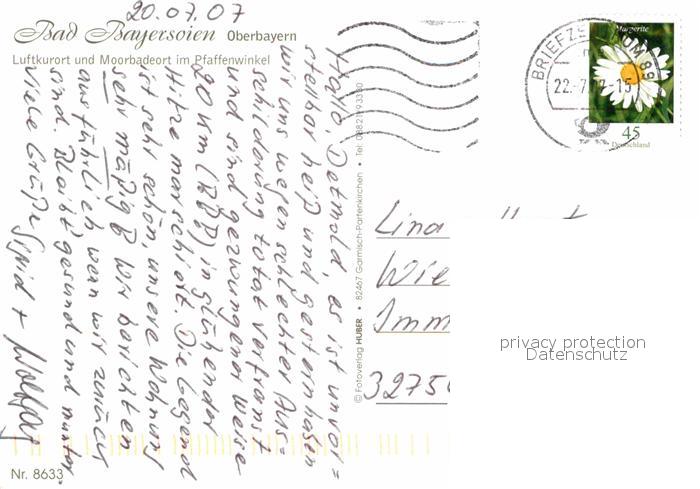 20.07.07
Bad Bayersoien Oberbayern
Luftkurort und Moorbadeort im Pfaffenwinkel
Hallo, Detmold, es ist unvor=
stellbar heiß und gestern haben
wir uns wegen schlechter Aus=
schilderung total verfranst
und sind gezwungener Weise
20 km (ächz) in glühender
Hitze marschiert. Die Gegend
ist sehr schön, unsere Wohnung
sehr mäßig. Wir berichten
ausführlich wenn wir zurück
sind. Bleibt gesund und munter.
Viele Grüße Sigrid + Wolfgang
Nr. 8633
© Fotoverlag HUBER • 82467 Garmisch-Partenkirchen • Tel. 08821/93330
BRIEFZENTRUM 89
22.-7.07-15
Margerite
45
Deutschland
Lina
Wie
Imm
3275
privacy protection
Datenschutz